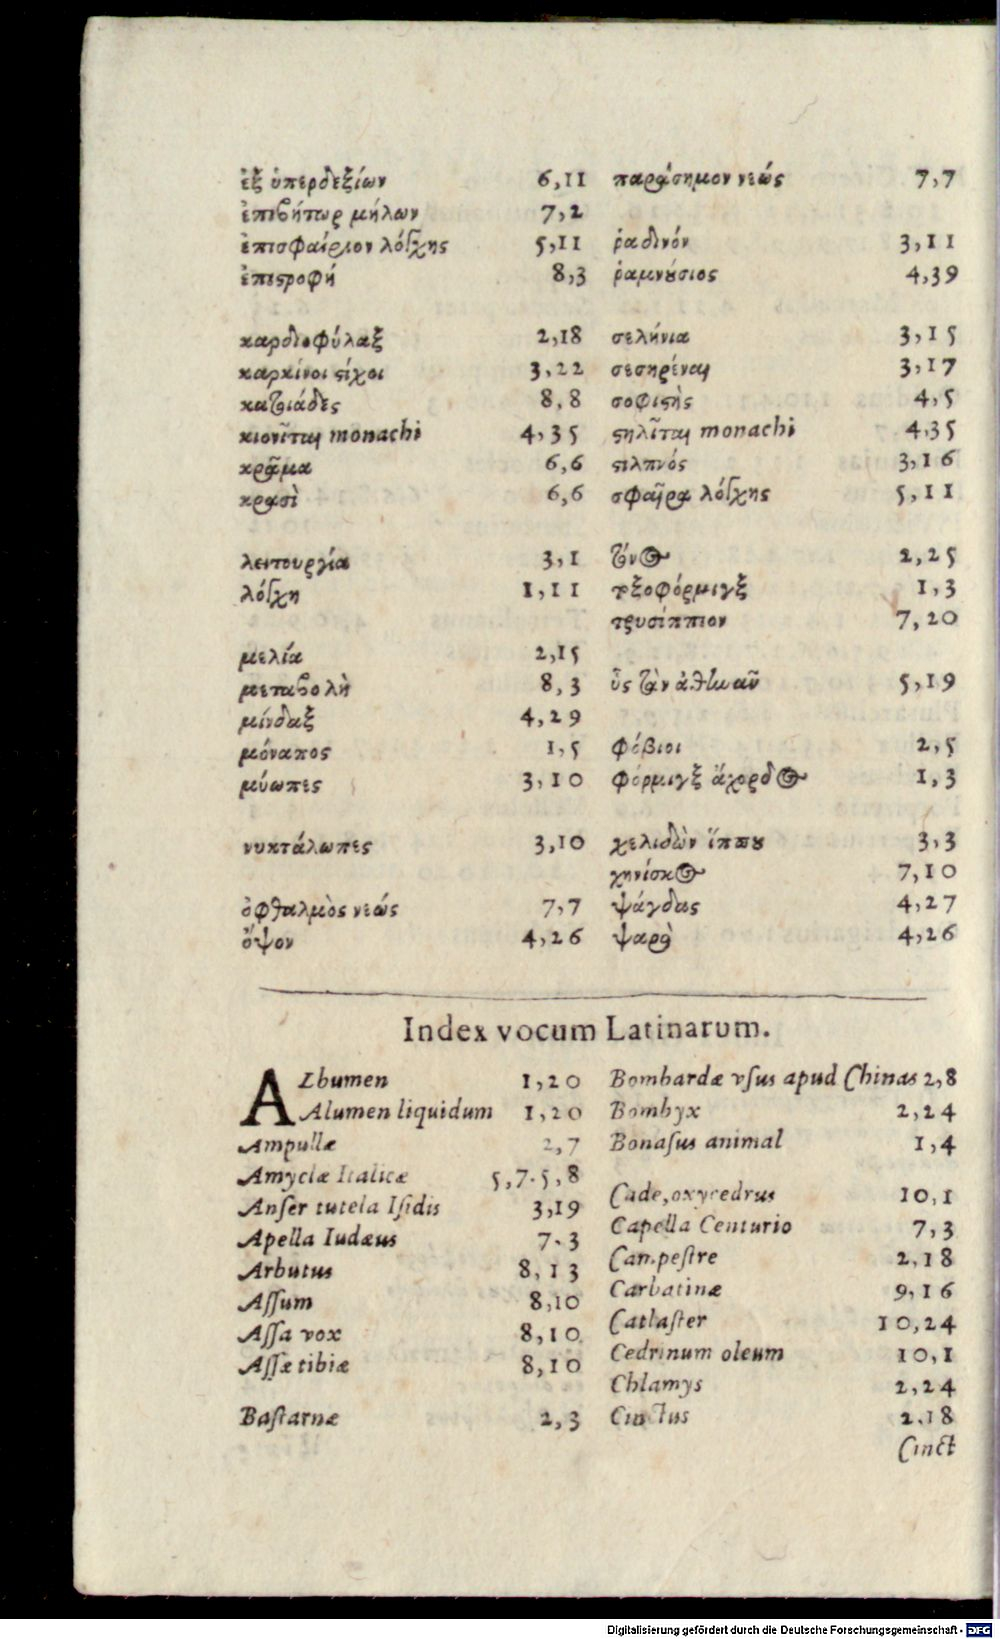 ἐξ ὑπερδεξίων 6,11
ἐπιβήτωρ μήλων 7,2
ἐπισφαίριον λόγχης 5,11
ἐπιστροφή 8,3
καρδιοφύλαξ 2,18
καρκίνοι στίχοι 3,22
κατιάδες 8,8
κιονῖται monachi 4,35
κρᾶμα 6,6
κρασὶ 6,6
λειτουργία 3,1
λόγχη 1,11
μελία 2,15
μεταβολὴ 8,3
μίνδαξ 4,29
μόναπος 1,5
μύωπες 3,10
νυκτάλωπες 3,10
ὀφθαλμὸς νεώς 7,7
ὄψον 4,26
παράσημον νεώς 7,7
ῥαδινόν 3,11
ῥαμνούσιος 4,39
σελήνια 3,15
σεσηρέναι 3,17
σοφιστὴς 4,5
στηλῖται monachi 4,35
στιλπνός 3,16
σφαῖρα λόγχης 5,11
τόνος 2,25
τοξοφόρμιγξ 1,3
τρυσίππιον 7,20
ὗς τὰν ἀθηναῦ 5,19
φόβιοι 2,5
φόρμιγξ ἄχορδος 1,3
χελιδὼν ἵππου 3,3
χηνίσκος 7,10
ψάγδας 4,27
ψαρὸ 4,26
Index vocum Latinarum.
ALbumen 1,20
Alumen liquidum 1,20
Ampullæ 2,7
Amyclæ Italicæ 5,7.5,8
Anſer tutela Iſidis 3,19
Apella Iudæus 7.3
Arbutus 8,13
Aſſum 8,10
Aſſa vox 8,10
Aſſæ tibiæ 8,10
Baſtarnæ 2,3
Bombardæ vſus apud Chinas 2,8
Bombyx 2,24
Bonaſus animal 1,4
Cade, oxycedrus 10,1
Capella Centurio 7,3
Campeſtre 2,18
Carbatinæ 9,16
Catlaſter 10,24
Cedrinum oleum 10,1
Chlamys 2,24
Cinctus 2.18
Cinct
Digitalisierung gefördert durch die Deutsche Forschungsgemeinschaft - DFG